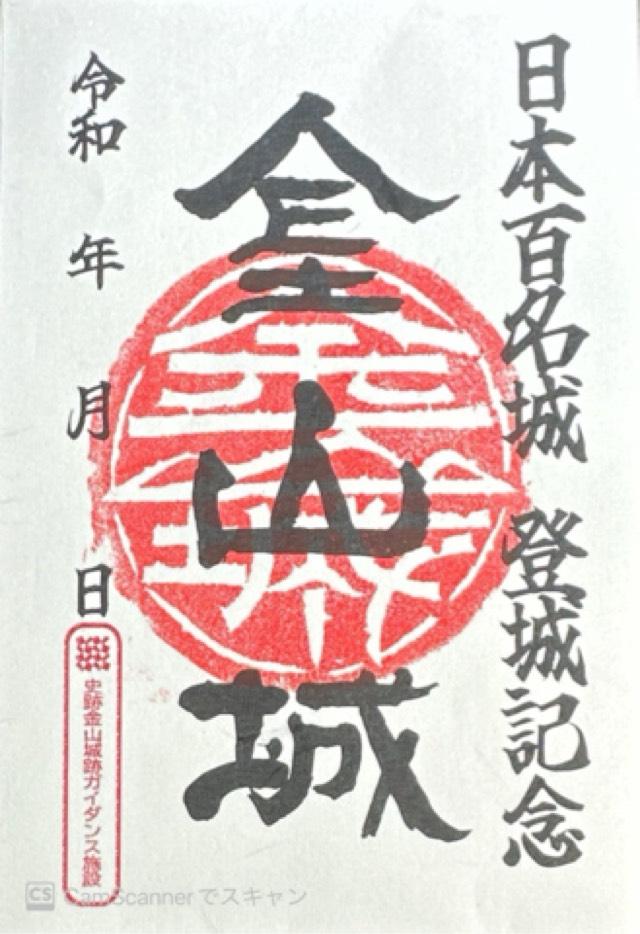 日本百名城 登城記念
金山城
令和 年 月 日
史跡金山城跡ガイダンス施設
CS CamScannerでスキャン